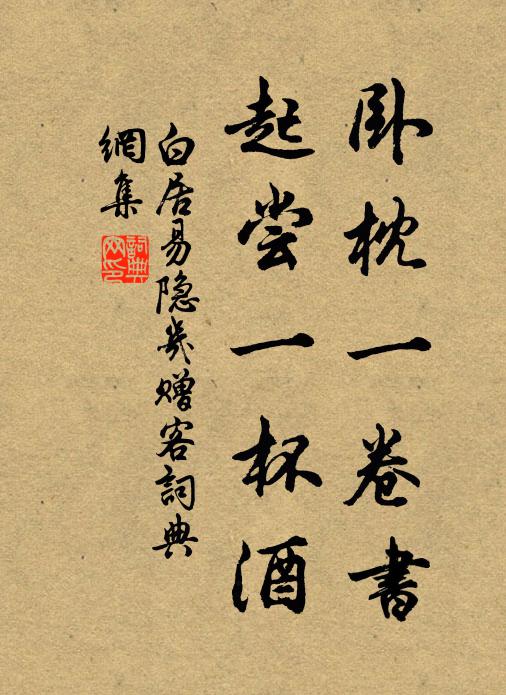 卧枕一卷書
起尝一杯酒
白居易隐几赠客詞典
網集
詞典
网印